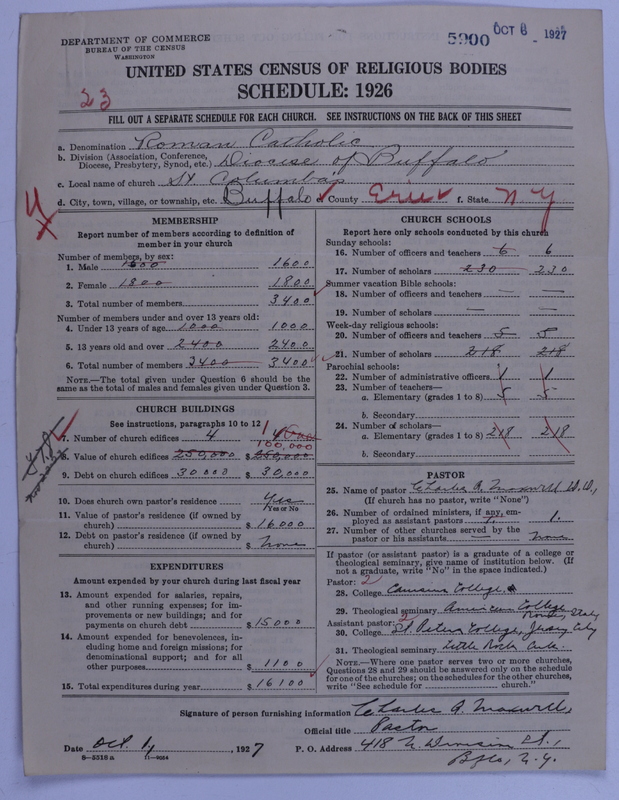 DEPARTMENT OF COMMERCE
BUREAU OF THE CENSUS
WASHINGTON
5900 OCT 6 - 1927
UNITED STATES CENSUS OF RELIGIOUS BODIES
SCHEDULE: 1926
23
FILL OUT A SEPARATE SCHEDULE FOR EACH CHURCH. SEE INSTRUCTIONS ON THE BACK OF THIS SHEET
a. Denomination Roman Catholic
b. Division (Association, Conference,
Diocese, Presbytery, Synod, etc.) Diocese of Buffalo
c. Local name of church St Columba's
d. City, town, village, or township, etc. Buffalo e. County Erie f. State N Y
MEMBERSHIP
Report number of members according to definition of
member in your church
Number of members, by sex:
1. Male 1600 1600
2. Female 1800 1800
3. Total number of members 3400
Number of members under and over 13 years old:
4. Under 13 years of age 1000 1000
5. 13 years old and over 2400 2400
6. Total number of members 3400 3400
NOTE.—The total given under Question 6 should be the
same as the total of males and females given under Question 3.
CHURCH BUILDINGS
See instructions, paragraphs 10 to 12
7. Number of church edifices 4 1
100,000
8. Value of church edifices 250,000 $ 250,000
9. Debt on church edifices 30000 $ 30,000
10. Does church own pastor's residence Yes
Yes or No
11. Value of pastor's residence (if owned by
church) $ 16000
12. Debt on pastor's residence (if owned by
church) $ None
EXPENDITURES
Amount expended by your church during last fiscal year
13. Amount expended for salaries, repairs,
and other running expenses; for im-
provements or new buildings; and for
payments on church debt $ 15000
14. Amount expended for benevolences, in-
cluding home and foreign missions; for
denominational support; and for all
other purposes $ 1100
15. Total expenditures during year $ 16100
CHURCH SCHOOLS
Report here only schools conducted by this church
Sunday schools:
16. Number of officers and teachers 6 6
17. Number of scholars 230 230
Summer vacation Bible schools:
18. Number of officers and teachers — —
19. Number of scholars — —
Week-day religious schools:
20. Number of officers and teachers 5 5
21. Number of scholars 218 218
Parochial schools:
22. Number of administrative officers 1 1
23. Number of teachers—
a. Elementary (grades 1 to 8) 5 5
b. Secondary
24. Number of scholars—
a. Elementary (grades 1 to 8) 218 218
b. Secondary
PASTOR
25. Name of pastor Charles A. Maxwell D.D.,
(If church has no pastor, write "None")
26. Number of ordained ministers, if any, em-
ployed as assistant pastors 1. 1.
27. Number of other churches served by the
pastor or his assistants — None
If pastor (or assistant pastor) is a graduate of a college or
theological seminary, give name of institution below. (If
not a graduate, write "No" in the space indicated.)
Pastor: 2
28. College Canisius College
29. Theological seminary American College Rome, Italy
Assistant pastor: 2
30. College St Peters College, Jersey City
31. Theological seminary Little Rock Ark.
NOTE.—Where one pastor serves two or more churches,
Questions 28 and 29 should be answered only on the schedule
for one of the churches; on the schedules for the other churches,
write "See schedule for church."
Signature of person furnishing information Charles A. Maxwell,
Official title Pastor
Date Oct. 1, 1927 P. O. Address 418 N. Division St.,
Bflo, N.Y.
8—5310 a 11—9054